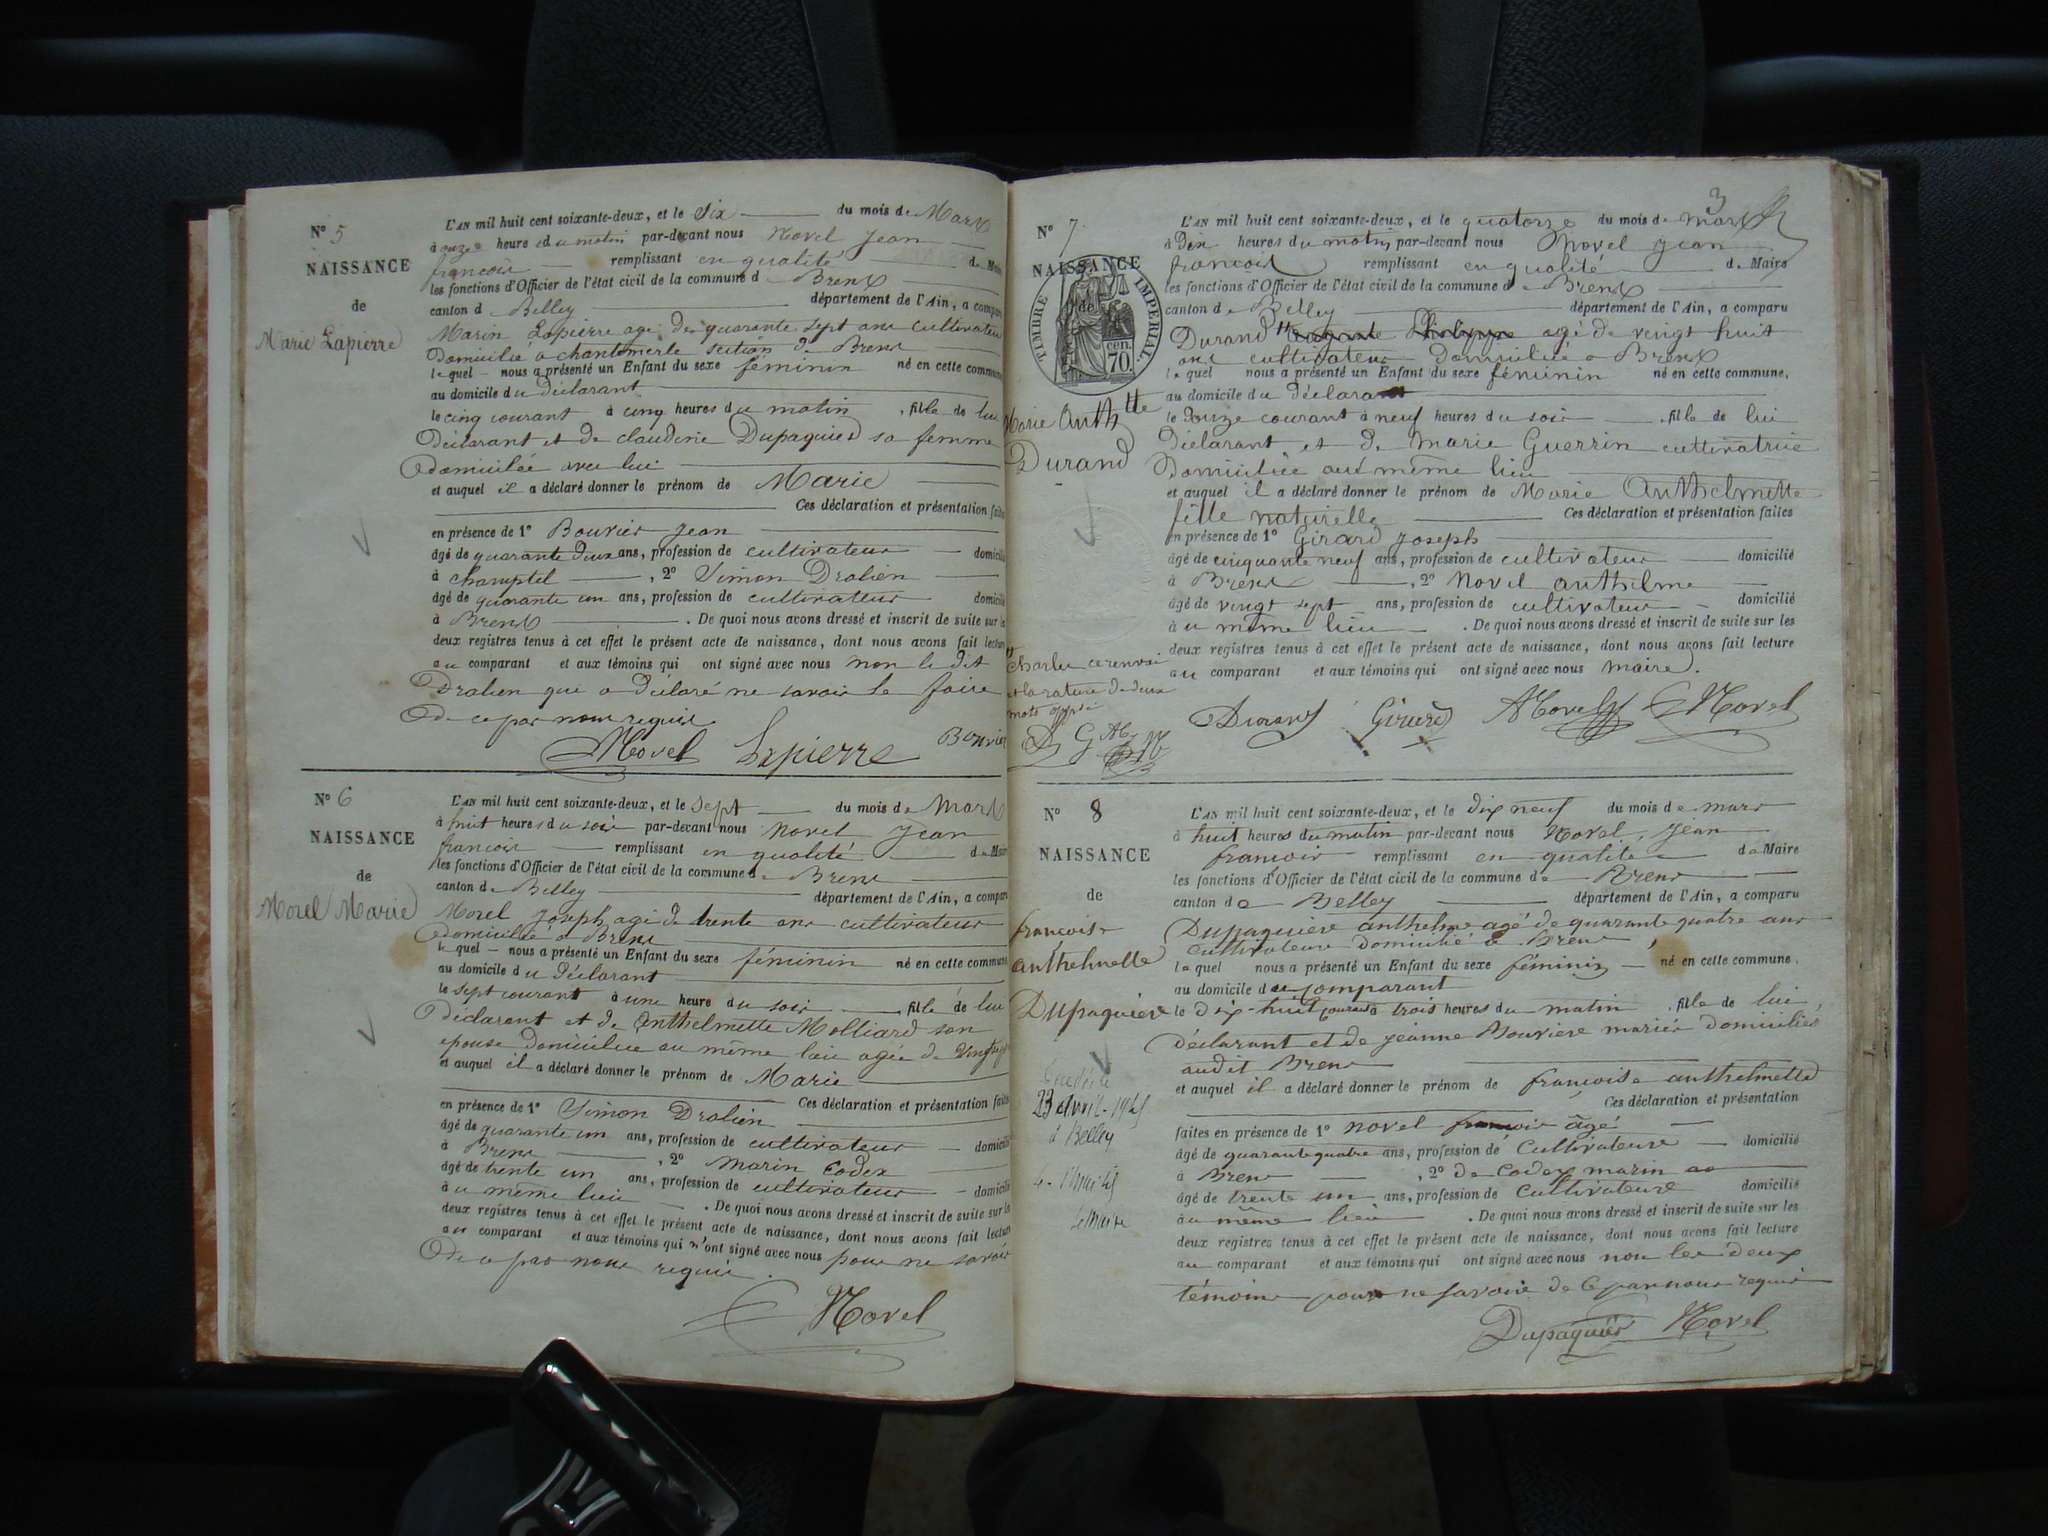 N° 5
NAISSANCE
de
Marie Lapierre
L'AN mil huit cent soixante-deux, et le Six du mois de Mars
à onze heures du matin par-devant nous Novel Jean
françois remplissant en qualité de Maire
les fonctions d'Officier de l'état civil de la commune d Brens
canton d Belley département de l'Ain, a comparu
Marin Lapierre agé de quarante sept ans cultivateur
Domicilié a chantemerle section de Brens
lequel nous a présenté un Enfant du sexe féminin né en cette commune
au domicile du Déclarant
le cinq courant à cinq heures du matin , fille de lui
Déclarant et de claudine Dupaquier sa femme
Domiciliée avec lui
et auquel il a déclaré donner le prénom de Marie
Ces déclaration et présentation faites
en présence de 1° Bouvier Jean
âgé de quarante deux ans, profession de cultivateur domicilié
à champtel , 2° Simon Dralien
âgé de quarante un ans, profession de cultivateur domicilié
à Brens . De quoi nous avons dressé et inscrit de suite sur les
deux registres tenus à cet effet le présent acte de naissance, dont nous avons fait lecture
au comparant et aux témoins qui ont signé avec nous non le dit
Dralien qui a déclaré ne savoir le faire
de ce par nous requis
Novel Lapierre Bouvier
N° 6
NAISSANCE
de
Morel Marie
L'AN mil huit cent soixante-deux, et le Sept du mois de Mars
à huit heures du soir par-devant nous Novel Jean
françois remplissant en qualité de Maire
les fonctions d'Officier de l'état civil de la commune de Brens
canton de Belley département de l'Ain, a comparu
Morel Joseph agé de trente ans cultivateur
domicilié à Brens
lequel nous a présenté un Enfant du sexe féminin né en cette commune
au domicile du déclarant
le sept courant à une heure du soir fille de lui
Déclarant et de Anthelmette Molliard son
epouse domiciliée au même lieu agée de vingt
et auquel il a déclaré donner le prénom de Marie
Ces déclaration et présentation faites
en présence de 1° Simon Dralien
âgé de quarante un ans, profession de cultivateur domicilié
à Brens , 2° Marin Codex
âgé de trente un ans, profession de cultivateur domicilié
à u même lieu . De quoi nous avons dressé et inscrit de suite sur les
deux registres tenus à cet effet le présent acte de naissance, dont nous avons fait lecture
au comparant et aux témoins qui n'ont signé avec nous pour ne savoir
de ce par nous requis.
Novel
3
N° 7
NAISSANCE
de
TIMBRE IMPERIAL
70 cen.
Marie Anth tte
Durand
L'AN mil huit cent soixante-deux, et le quatorze du mois de mars
à Dix heures du matin par-devant nous Novel Jean
francois remplissant en qualité de Maire
les fonctions d'Officier de l'état civil de la commune d Brens
canton de Belley département de l'Ain, a comparu
Durand agé de vingt huit
ans cultivateur Domicilié a Brens
lequel nous a présenté un Enfant du sexe féminin né en cette commune,
au domicile du déclarant
le Douze courant à neuf heures du soir fille de lui
Déclarant et de Marie Guerrin cultivatrice
Domiciliée aud même lieu
et auquel il a déclaré donner le prénom de Marie Anthelmette
fille naturelle Ces déclaration et présentation faites
en présence de 1° Girard Joseph
âgé de cinquante neuf ans, profession de cultivateur domicilié
à Brens , 2° Novel anthelme
âgé de vingt sept ans, profession de cultivateur domicilié
à u même lieu . De quoi nous avons dressé et inscrit de suite sur les
deux registres tenus à cet effet le présent acte de naissance, dont nous avons fait lecture
au comparant et aux témoins qui ont signé avec nous maire.
Charles ce renvoi
et la rature de deux
mots
D G AN
Durand Girard ANovel Novel
N° 8
NAISSANCE
de
françoise
anthelmette
Dupaquiere
23 avril 1945
à Belley
Le Maire
L'AN mil huit cent soixante-deux, et le dix neuf du mois de mars
à huit heures du matin par-devant nous Novel, Jean
francois remplissant en qualite de Maire
les fonctions d'Officier de l'état civil de la commune de Brens
canton de Belley département de l'Ain, a comparu
Dupaquiere anthelme agé de quarante quatre ans
cultivateur Domicilié à Brens
lequel nous a présenté un Enfant du sexe féminin né en cette commune.
au domicile du comparant
le dix-huit courant à trois heures du matin , fille de lui,
déclarant et de jeanne Bouviere mariés domiciliés
audit Brens
et auquel il a déclaré donner le prénom de françoise anthelmette
Ces déclaration et présentation
faites en présence de 1° novel françois âgé
âgé de quarante quatre ans, profession de Cultivateure domicilié
à Brens , 2° de Codex marin
âgé de trente un ans, profession de Cultivateure domicilié
au même lieu . De quoi nous avons dressé et inscrit de suite sur les
deux registres tenus à cet effet le présent acte de naissance, dont nous avons fait lecture
au comparant et aux témoins qui ont signé avec nous non les deux
témoins pour ne savoir de ce par nous requis
Dupaquier Novel